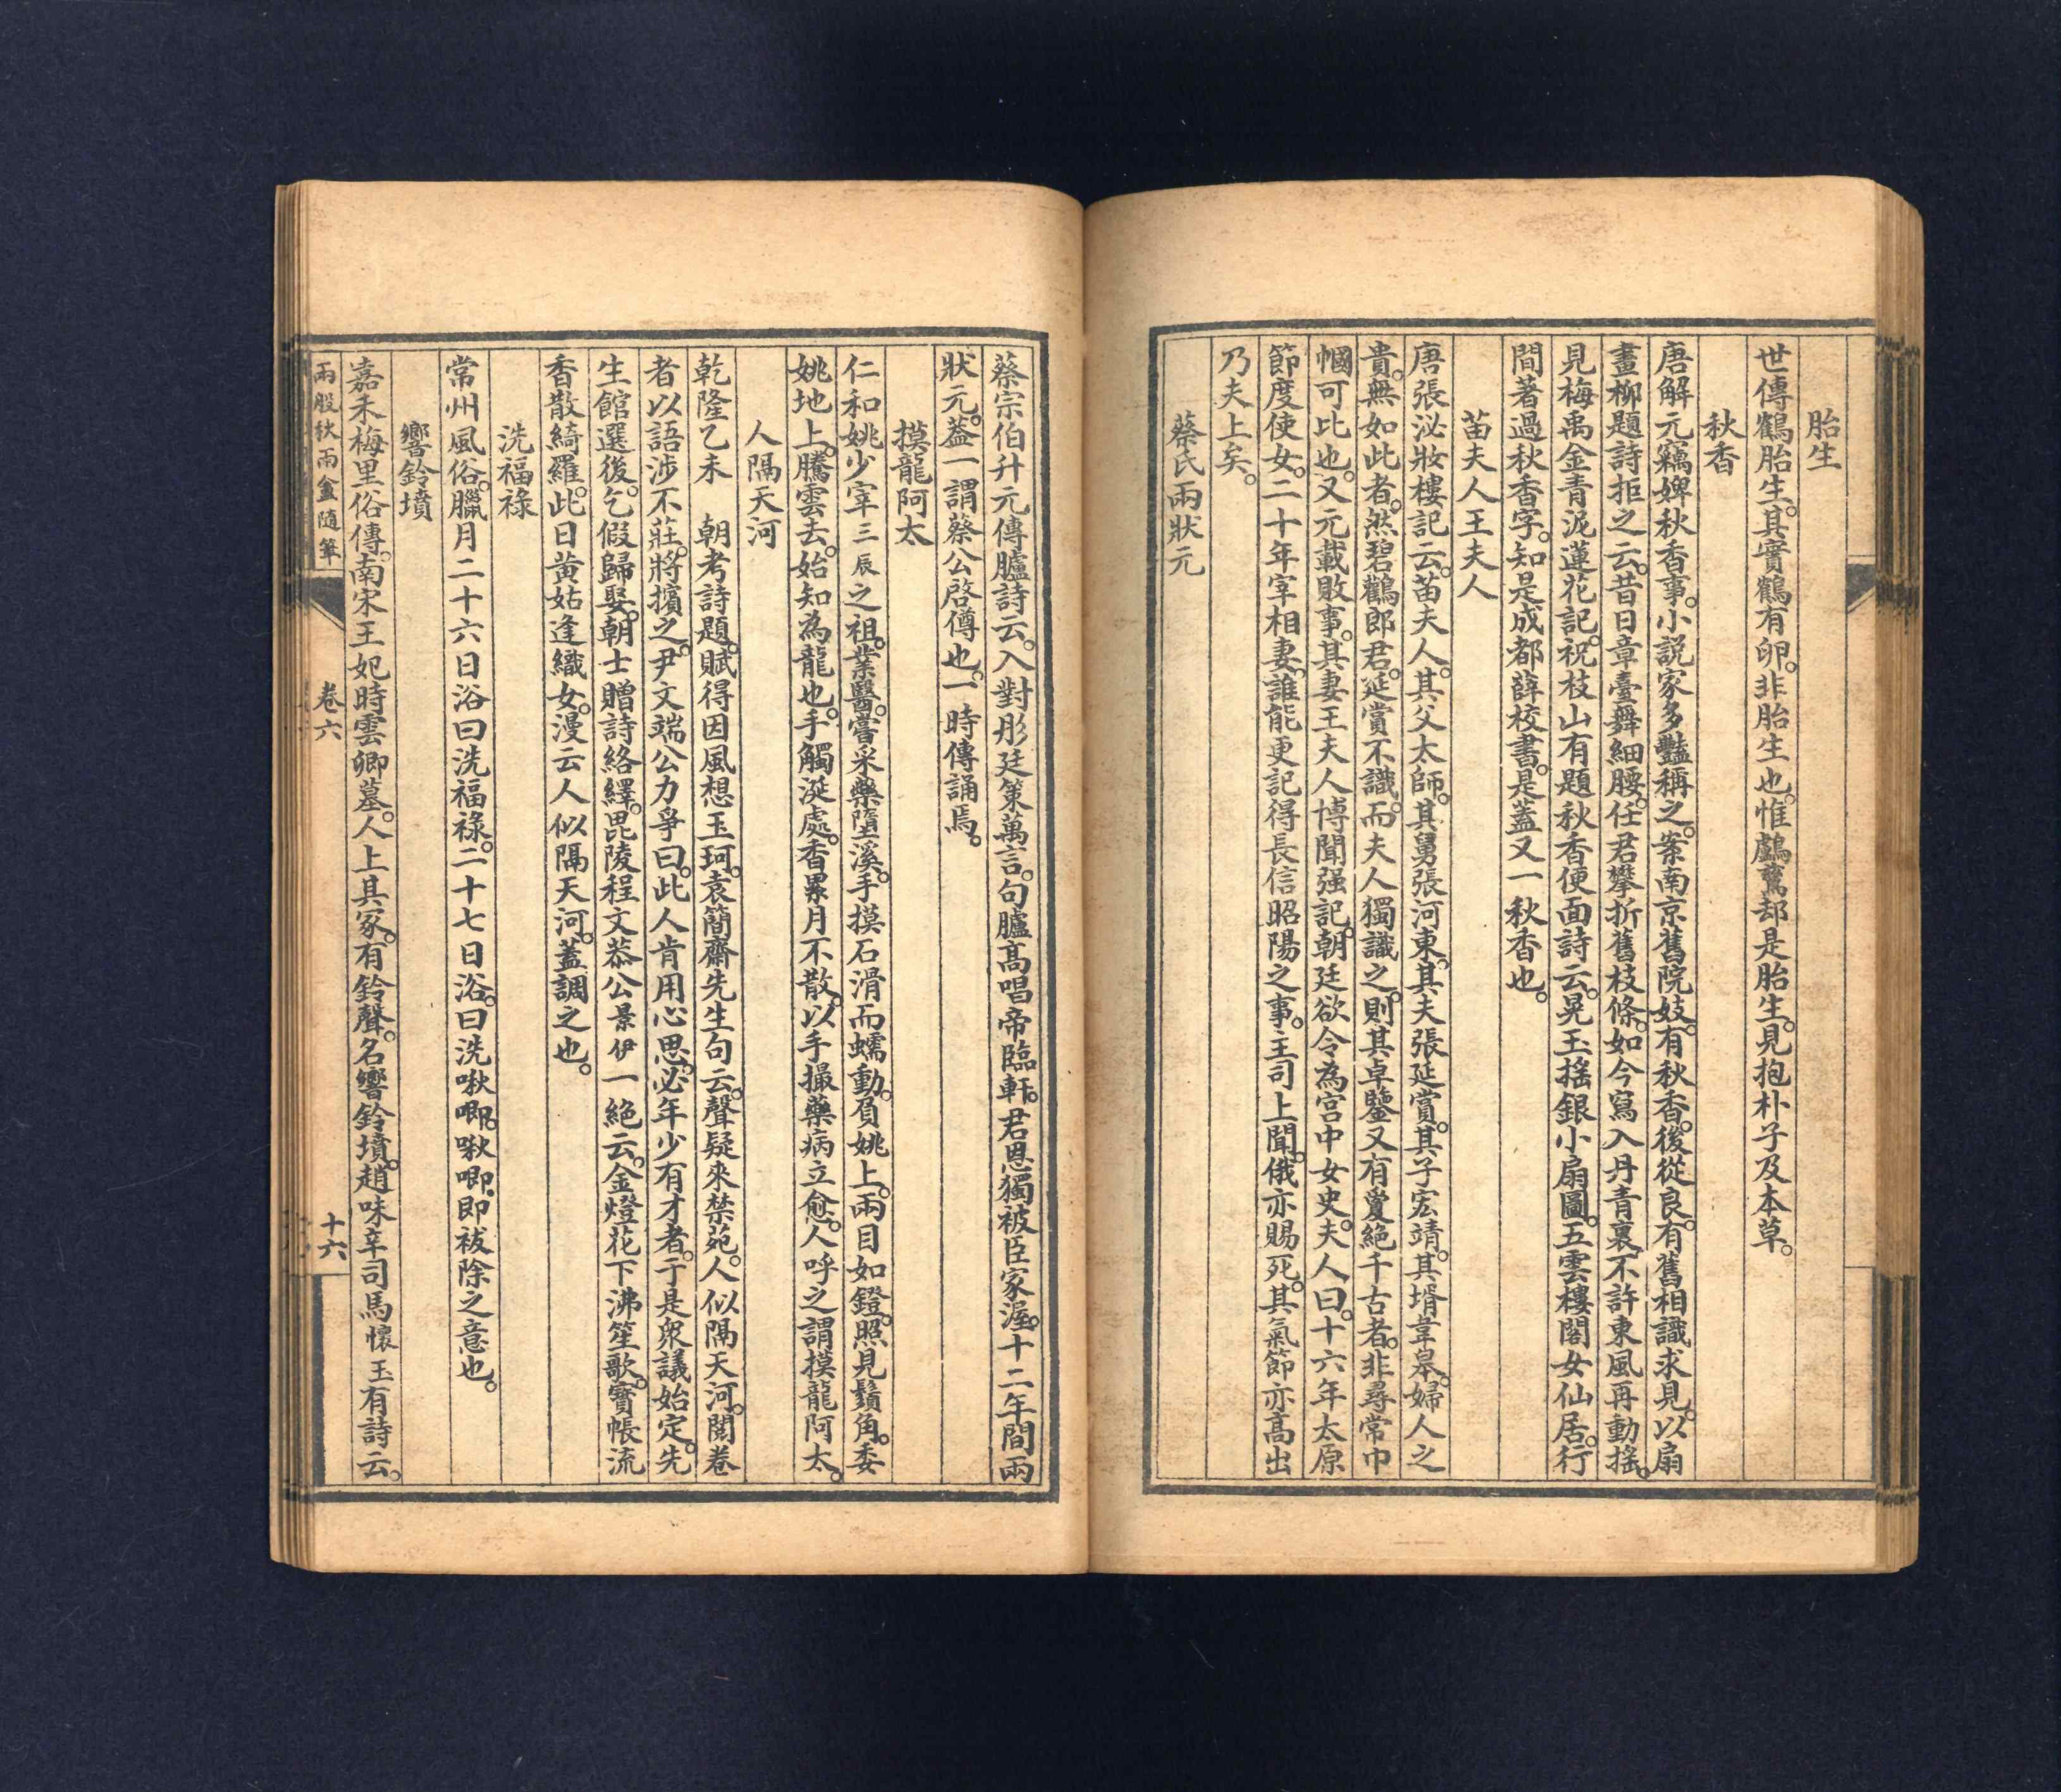 胎生
世傳鶴胎生。其實鶴有卵。非胎生也。惟鸕鶿却是胎生。見抱朴子及本草。
秋香
唐解元竊婢秋香事。小説家多豔稱之。案南京舊院妓。有秋香。後從良。有舊相識求見。以扇
畫柳題詩拒之云。昔日章臺舞細腰。任君攀折舊枝條。如今寫入丹青裏。不許東風再動搖。
見梅禹金青泥蓮花記。祝枝山有題秋香便面詩云。晃玉搖銀小扇圖。五雲樓閣女仙居。行
間著過秋香字。知是成都薛校書。是蓋又一秋香也。
苗夫人王夫人
唐張泌妝樓記云。苗夫人。其父太師。其舅張河東。其夫張延賞。其子宏靖。其壻韋皋。婦人之
貴。無如此者。然碧鸛郎君。延賞不識。而夫人獨識之。則其卓鑒又有敻絕千古者。非尋常巾
幗可比也。又元載敗事。其妻王夫人博聞强記。朝廷欲令為宮中女史。夫人曰。十六年太原
節度使女。二十年宰相妻。誰能更記得長信昭陽之事。主司上聞。俄亦賜死。其氣節亦高出
乃夫上矣。
蔡氏兩狀元
蔡宗伯升元傳臚詩云。入對彤廷策萬言。句臚高唱帝臨軒。君恩獨被臣家渥。十二年間兩
狀元。蓋一謂蔡公啓僔也。一時傳誦焉。
摸龍阿太
仁和姚少宰三辰之祖。業醫。嘗采藥墮溪。手摸石滑而蠕動。負姚上。兩目如鐙。照見鬚角。委
姚地上。騰雲去。始知為龍也。手觸涎處。香累月不散。以手撮藥病立愈。人呼之謂摸龍阿太。
人隔天河
乾隆乙未　朝考詩題。賦得因風想玉珂。袁簡齋先生句云。聲疑來禁苑。人似隔天河。閱卷
者以語涉不莊。將擯之。尹文端公力爭曰。此人肯用心思。必年少有才者。于是衆議始定。先
生館選後。乞假歸娶。朝士贈詩絡繹。毘陵程文恭公景伊一絕云。金燈花下沸笙歌。寶帳流
香散綺羅。此日黃姑逢織女。漫云人似隔天河。蓋調之也。
洗福祿
常州風俗。臘月二十六日浴曰洗福祿。二十七日浴。曰洗啾唧。啾唧。即祓除之意也。
響鈴墳
嘉禾梅里俗傳。南宋王妃時雲卿墓。人上其冢。有鈴聲。名響鈴墳。趙味辛司馬懷玉有詩云。
兩般秋雨盦隨筆　卷六　十六